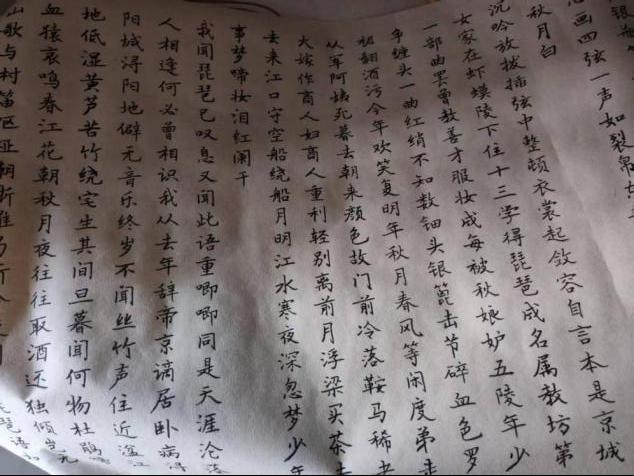 银瓶
心画四弦一声如裂帛东
秋月白
沉吟放拨插弦中整顿衣裳起敛容自言本是京城
女家在虾蟆陵下住十三学得琵琶成名属教坊第
一部曲罢曾教善才服妆成每被秋娘妒五陵年少
争缠头一曲红绡不知数钿头银篦击节碎血色罗
裙翻酒污今年欢笑复明年秋月春风等闲度弟走
从军阿姨死暮去朝来颜色故门前冷落鞍马稀老
大嫁作商人妇商人重利轻别离前月浮梁买茶去
去来江口守空船绕船月明江水寒夜深忽梦少年
事梦啼妆泪红阑干
我闻琵琶已叹息又闻此语重唧唧同是天涯沦落
人相逢何必曾相识我从去年辞帝京谪居卧病浔
阳城浔阳地僻无音乐终岁不闻丝竹声住近湓江
地低湿黄芦苦竹绕宅生其间旦暮闻何物杜鹃
血猿哀鸣春江花朝秋月夜往往取酒还独倾岂无
山歌与村笛呕哑嘲哳难为听今夜闻
琵琶语如